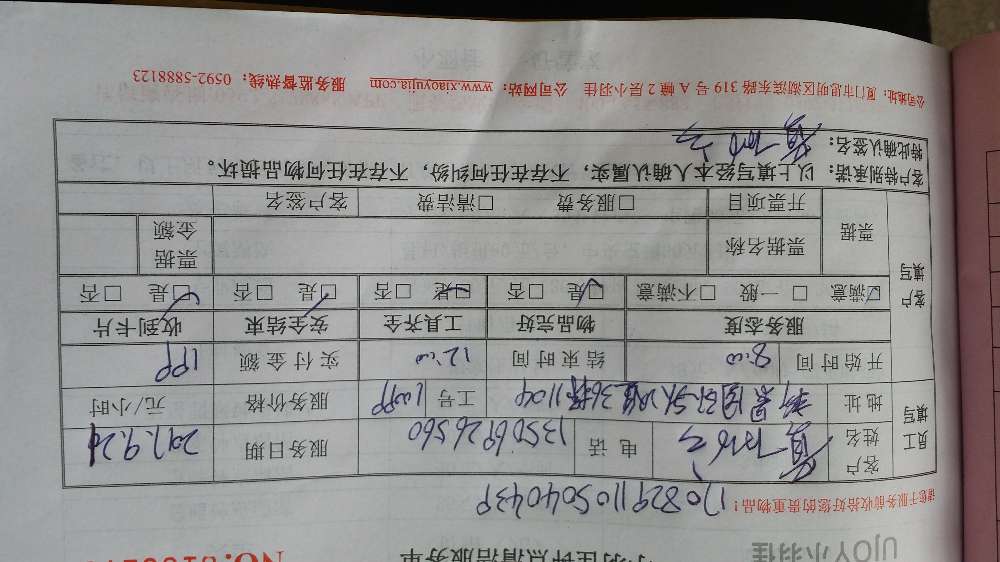 UJOY小羽佳
小羽佳钟点清洁服务单
NO.
请您于服务前收拾好您的贵重物品!
170829110504043P
员工填写
客户姓名
电话 13506926560
服务日期 2017.9.21
地址
工号
服务价格 元/小时
开始时间 8:00
结束时间 12:00
实付金额
客户填写
服务态度 物品完好 工具齐全 安全结束 收到卡片
☑满意 □一般 □不满意 □是 □否 □是 □否 □是 □否 □是 □否
票据
票据名称 票据金额
开票项目 □服务费 □清洁费 客户签名
客户特别承诺:以上填写经本人确认属实,不存在任何纠纷,不存在任何物品损坏。
特此确认签名:
公司地址:厦门市思明区湖滨东路 319 号 A 幢 2 层小羽佳 公司网站:www.xiaoyujia.com 服务监督热线:0592-5888123